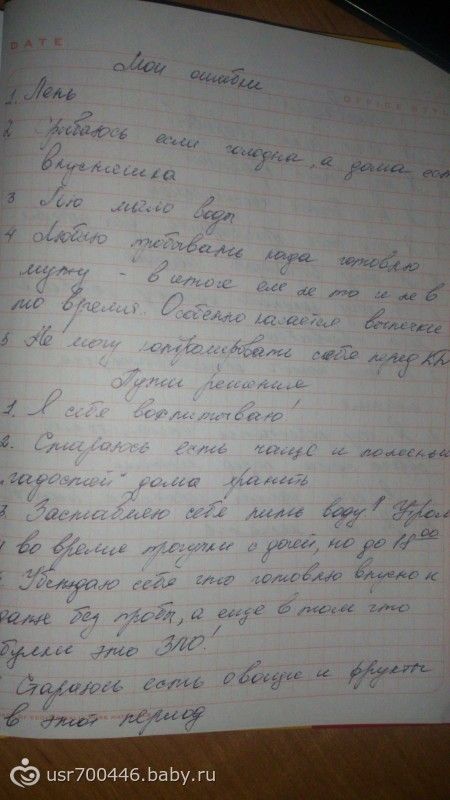 DATE
Мои ошибки
1. Лень
2 Срываюсь если голодна, а дома ест
вкусняшка
3 Пью мало воды
4 Люблю пробывать када готовлю
мужу - в итоге ем не то и не в
то время. Особенно касается выпечки
5 Не могу контролировать себя перед КД
Пути решения
1. Я себя воспитываю!
2. Стараюсь есть чаще и
"гадостей" дома хранить
3. Заставляю себя пить воду! Утром
и во время прогулки с дочей, но до 18 00
Убеждаю себя что готовлю вкусно и
даже без пробы, а еще в том что
булки это ЗЛО!
Стараюсь есть овощи и фрукты
в этот период
usr700446.baby.ru